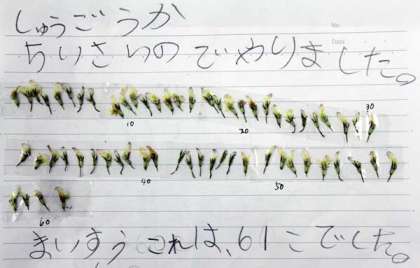 しゅうごうか
ちいさいのでやりました。
10
20
30
40
50
60
まいすう これは、61こでした。